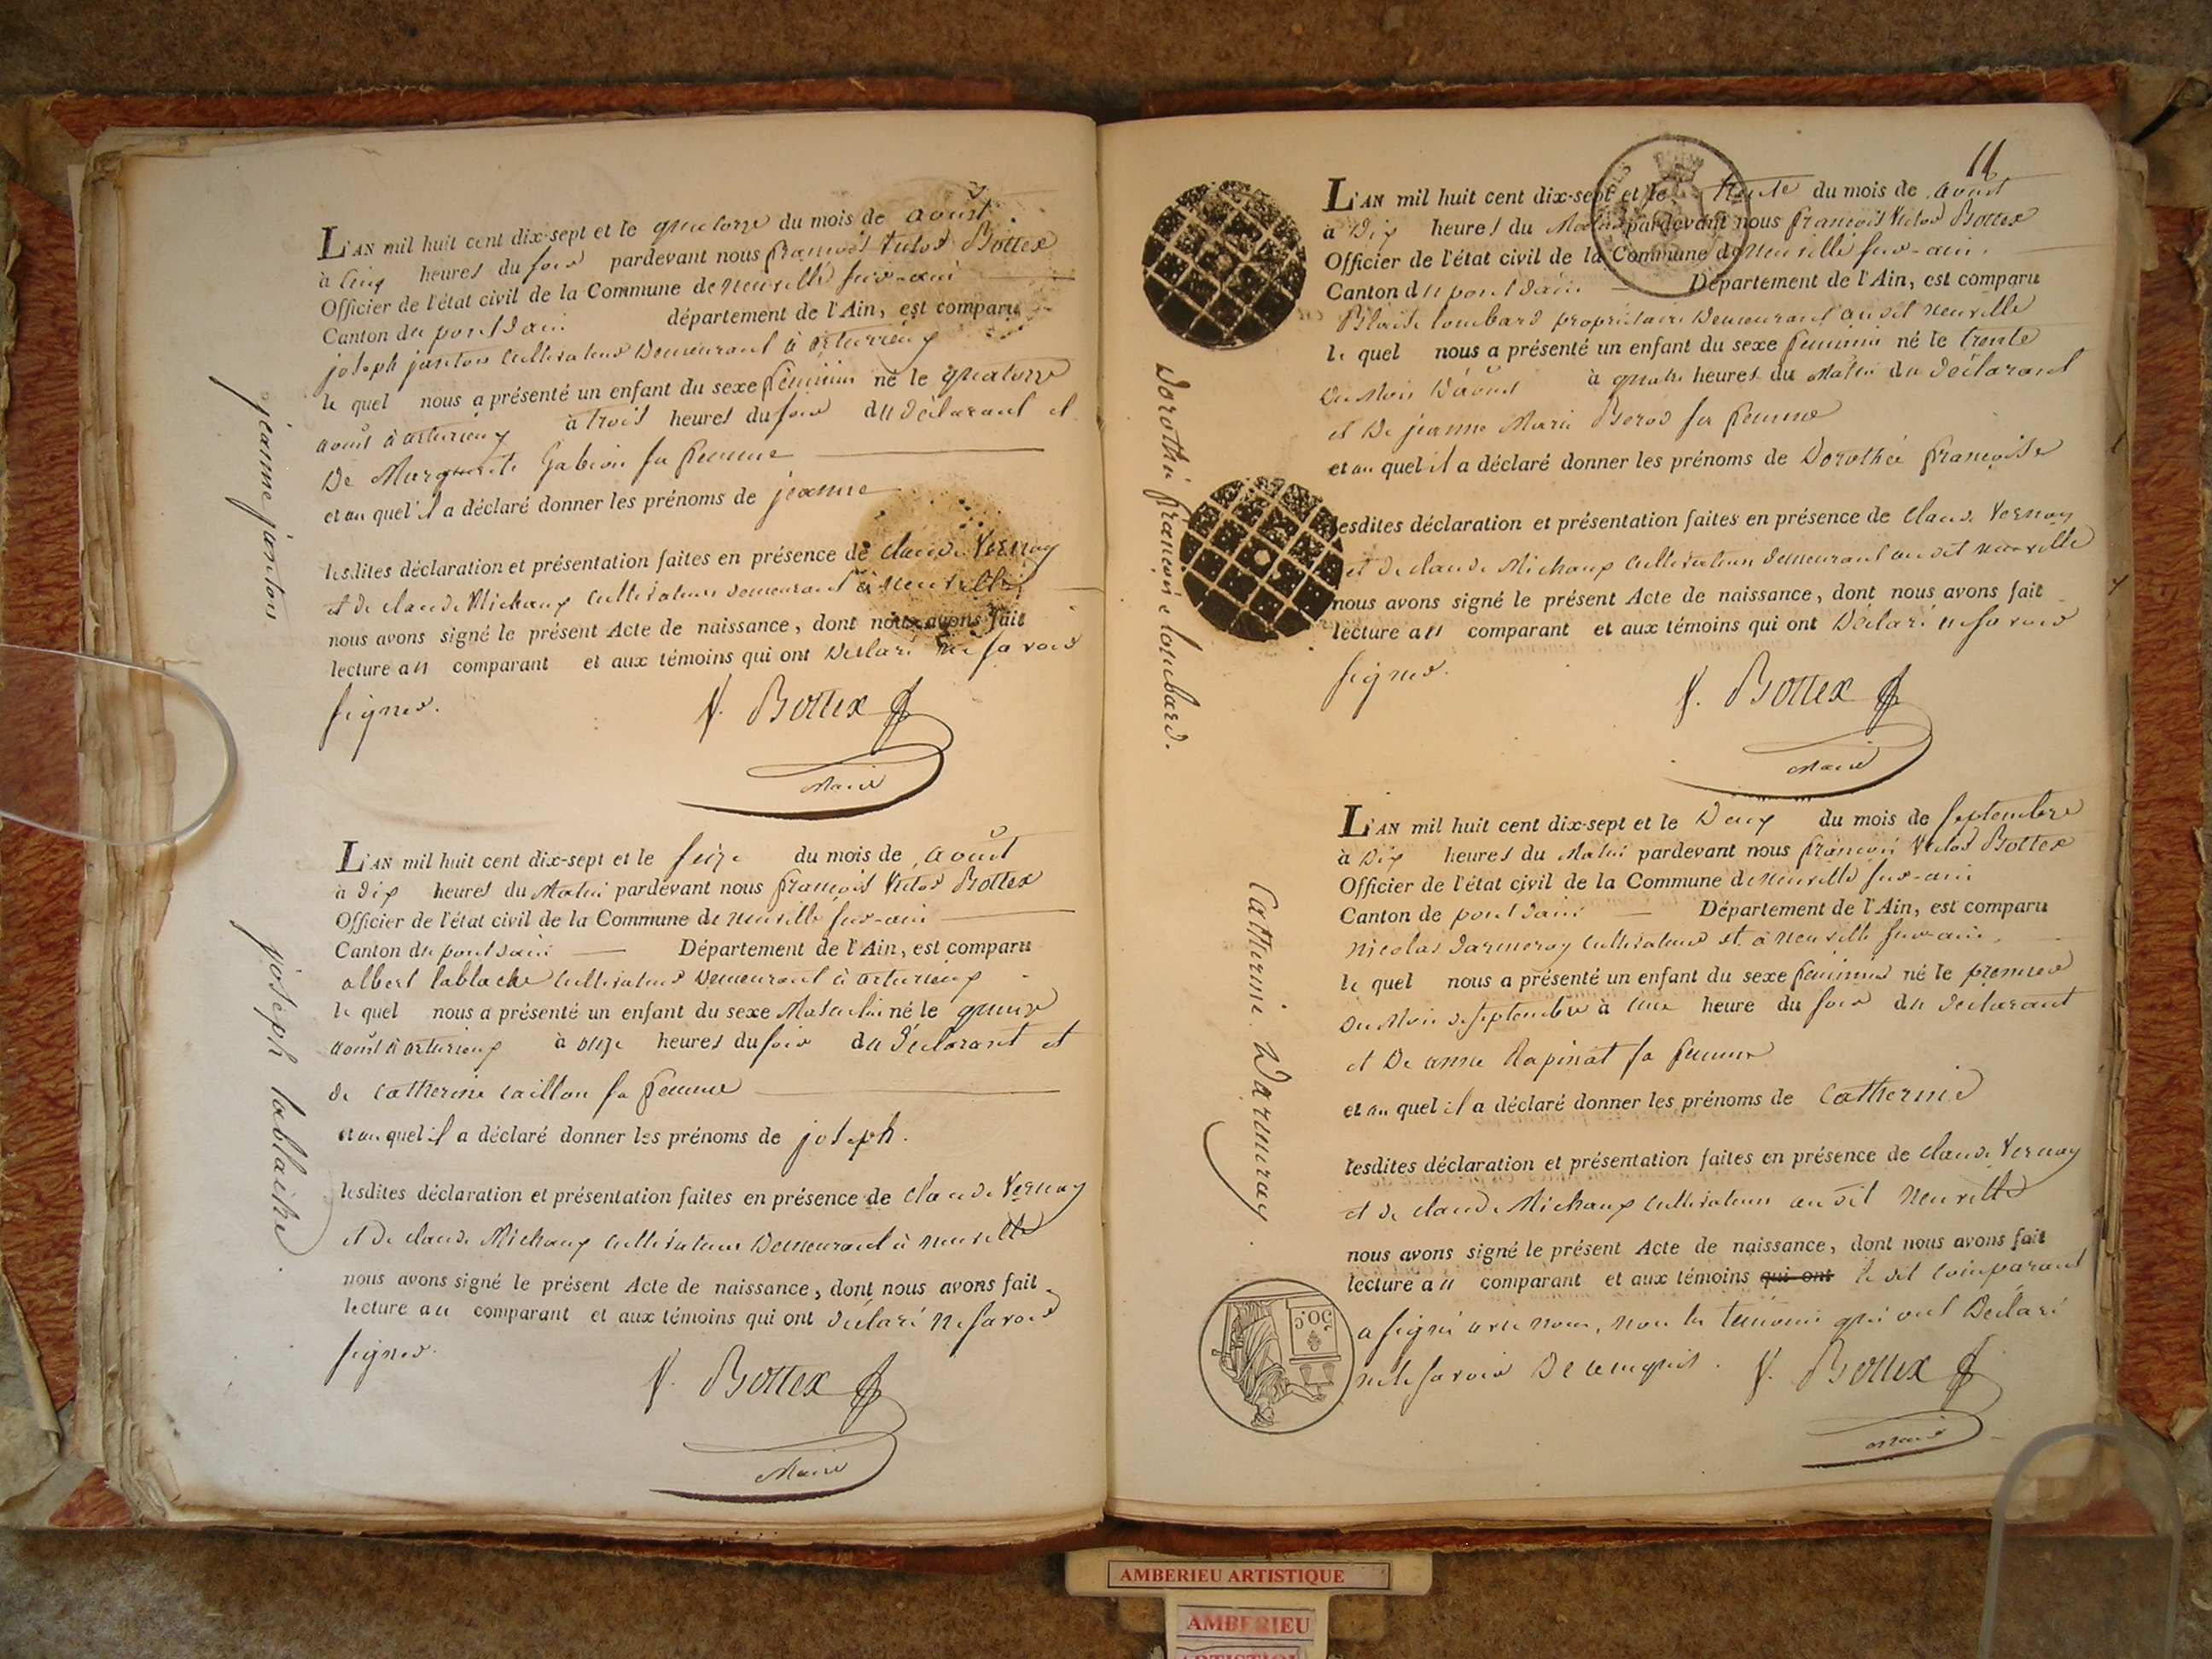 L'AN mil huit cent dix-sept et le quatorze du mois de aoûst
à cinq heures du soir pardevant nous françois victor Bottex
Officier de l'état civil de la Commune de neuville sur-ain
Canton du pont d'ain département de l'Ain, est comparu
joseph janton cultivateur demeurant à
le quel nous a présenté un enfant du sexe féminin né le quatorze
aoust à à trois heures du soir du déclarant et
De Marguerite Gabion sa femme
et au quel il a déclaré donner les prénoms de jeanne
lesdites déclaration et présentation faites en présence de claude Vernay
et de claude Michaux cultivateurs demeurant à neuville
nous avons signé le présent Acte de naissance, dont nous avons fait
lecture au comparant et aux témoins qui ont déclaré ne savoir
signer.
V. Bottex
Maire
jeanne janton
L'AN mil huit cent dix-sept et le seize du mois de aoust
à dix heures du Matin pardevant nous françois victor Bottex
Officier de l'état civil de la Commune de neuville sur-ain
Canton du pont d'ain Département de l'Ain, est comparu
albert lablache cultivateur demeurant à
le quel nous a présenté un enfant du sexe Masculin né le quinze
aoust à à onze heures du soir du déclarant et
de catherine caillon sa femme
et au quel il a déclaré donner les prénoms de joseph.
lesdites déclaration et présentation faites en présence de claude Vernay
et de claude Michaux cultivateurs demeurant à neuville
nous avons signé le présent Acte de naissance, dont nous avons fait
lecture au comparant et aux témoins qui ont déclaré ne savoir
signer.
V. Bottex
Maire
joseph lablaiche.
11
L'AN mil huit cent dix-sept et le trente du mois de aoust
à Dix heures du Matin pardevant nous françois victor Bottex
Officier de l'état civil de la Commune de neuville sur-ain.
Canton du pont d'ain Département de l'Ain, est comparu
Blaise lombard propriétaire demeurant au dit neuville
le quel nous a présenté un enfant du sexe féminin né le trente
du Mois d'aoust à quatre heures du Matin du déclarant
et De jeanne Marie Berod sa femme
et au quel il a déclaré donner les prénoms de Dorothée françoise
lesdites déclaration et présentation faites en présence de claude Vernay
et de claude Michaux cultivateurs demeurant au dit neuville
nous avons signé le présent Acte de naissance, dont nous avons fait
lecture au comparant et aux témoins qui ont Déclaré ne savoir
signer.
V. Bottex
Maire
Dorothée françoise lombard.
L'AN mil huit cent dix-sept et le Deux du mois de septembre
à Dix heures du Matin pardevant nous françois victor Bottex
Officier de l'état civil de la Commune de neuville sur-ain
Canton de pont d'ain Département de l'Ain, est comparu
nicolas darmeray cultivateur à neuville sur ain.
le quel nous a présenté un enfant du sexe féminin né le premier
Du Mois de septembre à une heure du soir du déclarant
et De anne Rapinat sa femme
et au quel il a déclaré donner les prénoms de Catherine
lesdites déclaration et présentation faites en présence de claude Vernay
et de claude Michaux cultivateurs au dit neuville
nous avons signé le présent Acte de naissance, dont nous avons fait
lecture au comparant et aux témoins qui ont le dit comparant
a signé avec nous, non les témoins qui ont Déclaré
ne le savoir De ce enquis. V. Bottex
Maire
Catherine Darmeray.
50C
AMBERIEU ARTISTIQUE
AMBERIEU
ARTISTIQUE